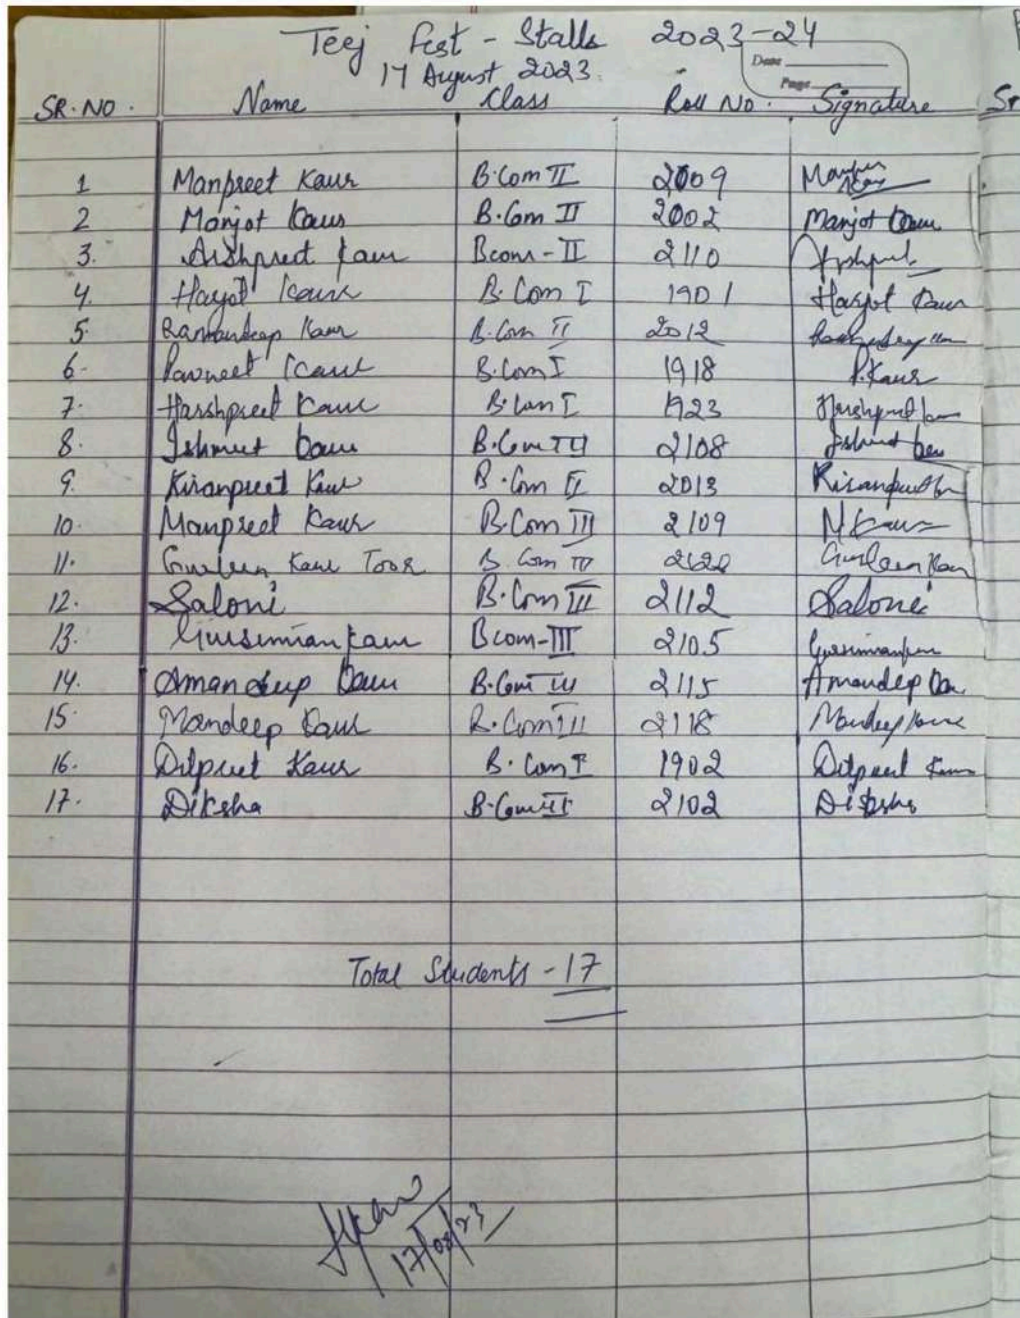 Teej Fest - Stalls 2023-24
17 August 2023.
Date
Page
SR. NO. Name Class Roll No. Signature Sr
1 Manpreet Kaur B.Com II 2009 Kaur
2 Manjot Kaur B.Com II 2002 Manjot Kaur
3. Arshpreet Kaur Bcom-II 2110 Arshpreet
4. Harjot Kaur B.Com I 1901 Harjot Kaur
5. Ramandeep Kaur B.Com II 2012
6- Pavneet Kaur B.Com I 1918 P.Kaur
7. Harshpreet Kaur B.Com I 1923 Harshpreet
8. Kaur B.Com III 2108
9. Kiranpreet Kaur B.Com II 2013
10. Manpreet Kaur B.Com III 2109 Kaur
11. Gurleen Kaur Toor B.Com III Gurleen Kaur
12. Saloni B.Com III 2112 Saloni
13. Gursimran Kaur Bcom-III 2105
14. Amandeep Kaur B.Com III 2115 Amandeep
15 Mandeep Kaur B.Com III 2118 Mandeep Kaur
16. Dilpreet Kaur B.Com I 1902 Dilpreet Kaur
17. Diksha B.Com III 2102 Diksha
Total Students - 17
17/08/23